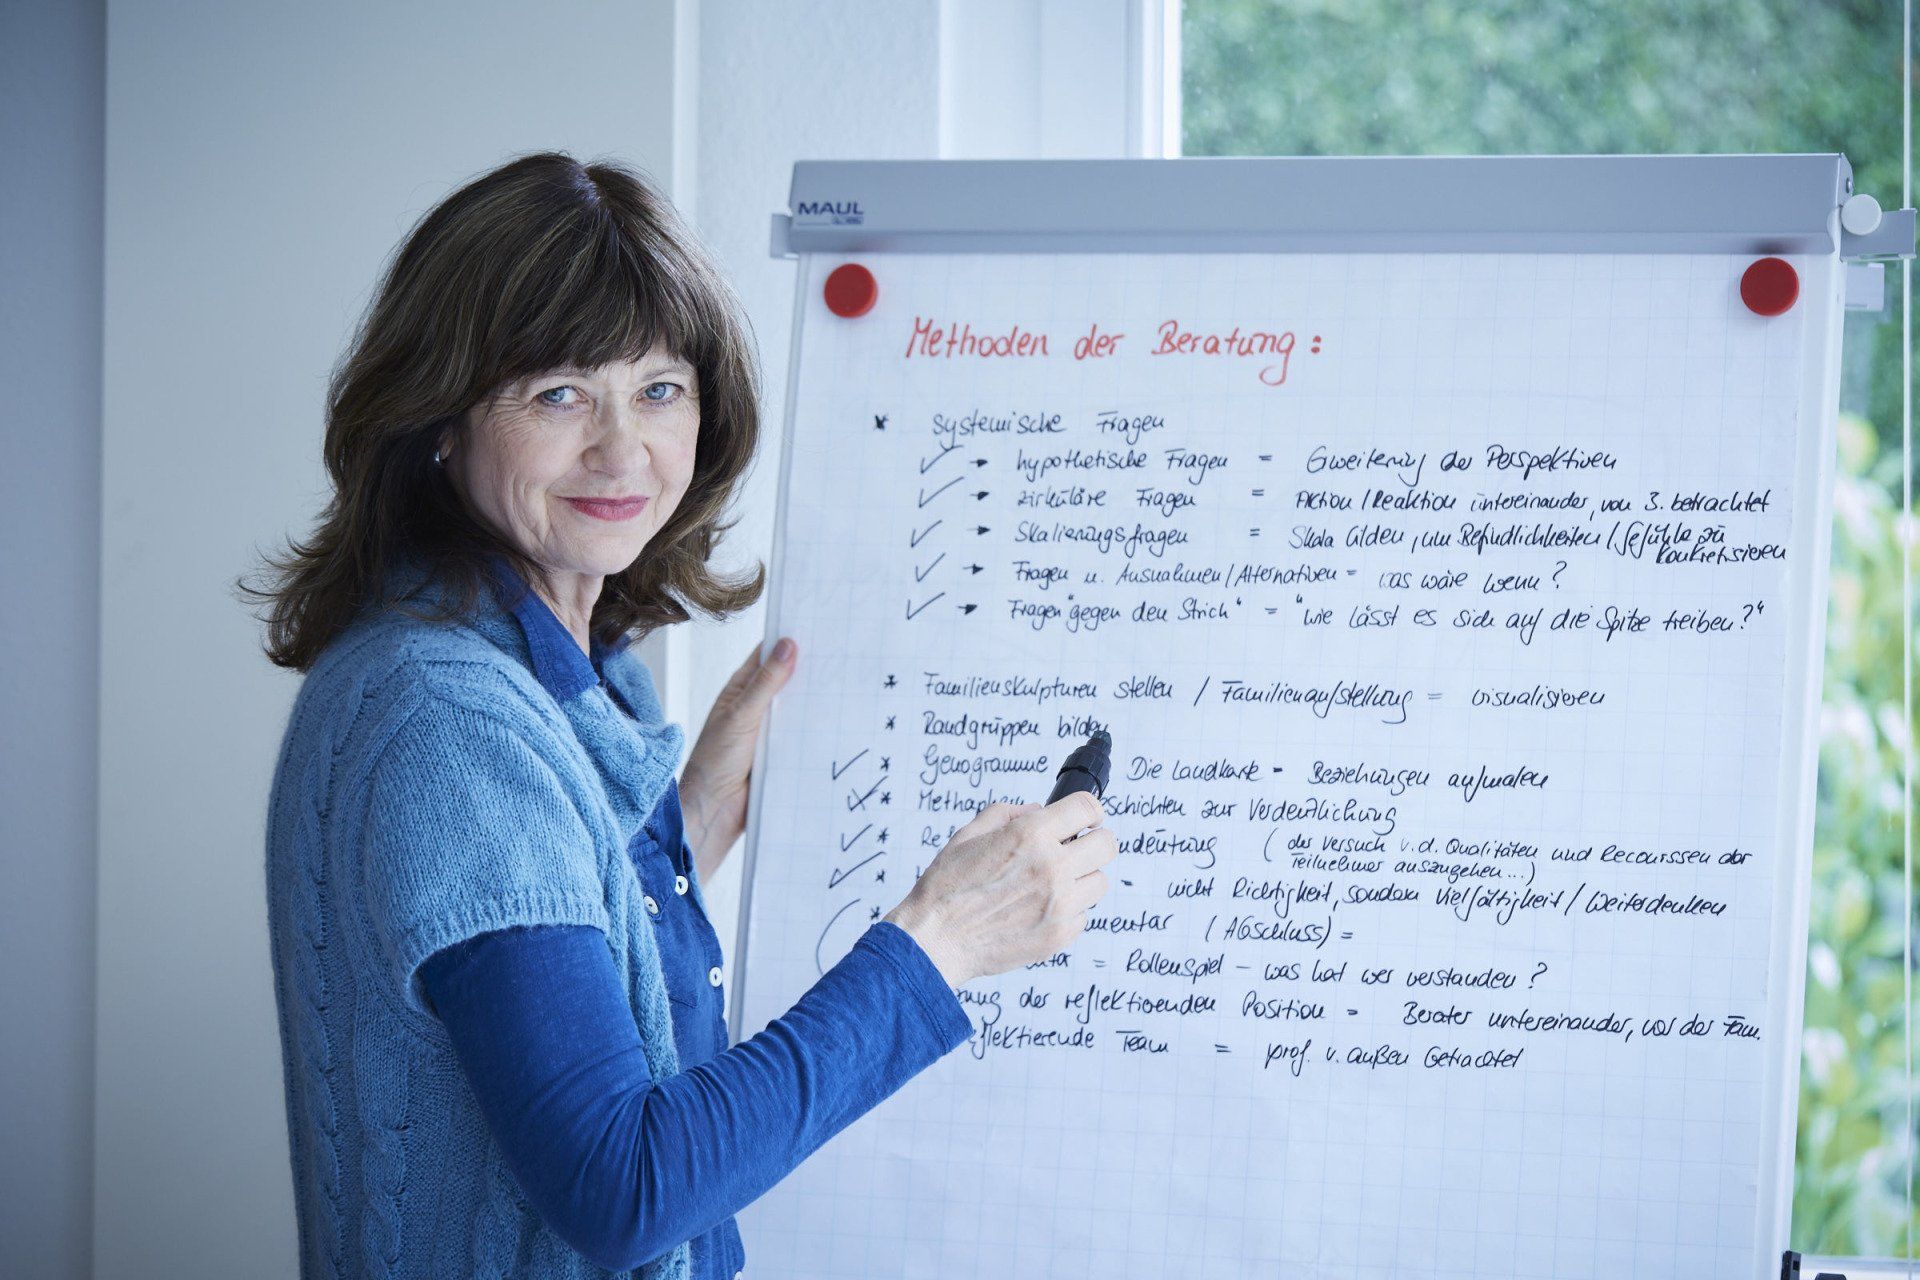 MAUL
Methoden der Beratung:
* systemische Fragen
✓ → hypothetische Fragen = Erweiterung der Perspektiven
✓ → zirkuläre Fragen = Aktion/Reaktion untereinander, von 3. betrachtet
✓ → Skalierungsfragen = Skala bilden, um Befindlichkeiten/Gefühle zu
konkretisieren
✓ → Fragen n. Ausnahmen/Alternativen = was wäre wenn?
✓ → Fragen "gegen den Strich" = "wie lässt es sich auf die Spitze treiben?"
* Familienskulpturen stellen / Familienaufstellung = visualisieren
* Randgruppen bilden
✓ * Genogramme Die Landkarte = Beziehungen aufmalen
* Methaph eschichten zur Verdeutlichung
✓ * Re mdeutung (der Versuch v.d. Qualitäten und Recourssen der
Teilnehmer auszugehen...)
✓ * = nicht Richtigkeit, sondern Vielfältigkeit/Weiterdenken
* mmentar (Abschluss) =
= Rollenspiel – was hat wer verstanden?
der reflektierenden Position = Berater untereinander, vor der Fam.
eflektierende Team = prof. v. außen betrachtet